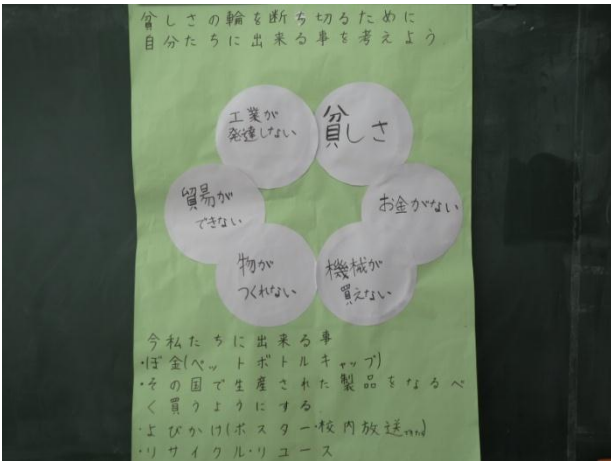 貧しさの輪を断ち切るために
自分たちに出来る事を考えよう
貧しさ
お金がない
機械が
買えない
物が
つくれない
貿易が
できない
工業が
発達しない
今私たちに出来る事
・ぼ金(ペットボトルキャップ)
・その国で生産された製品をなるべ
く買うようにする
・よびかけ(ポスター・校内放送and)
・リサイクル・リユース